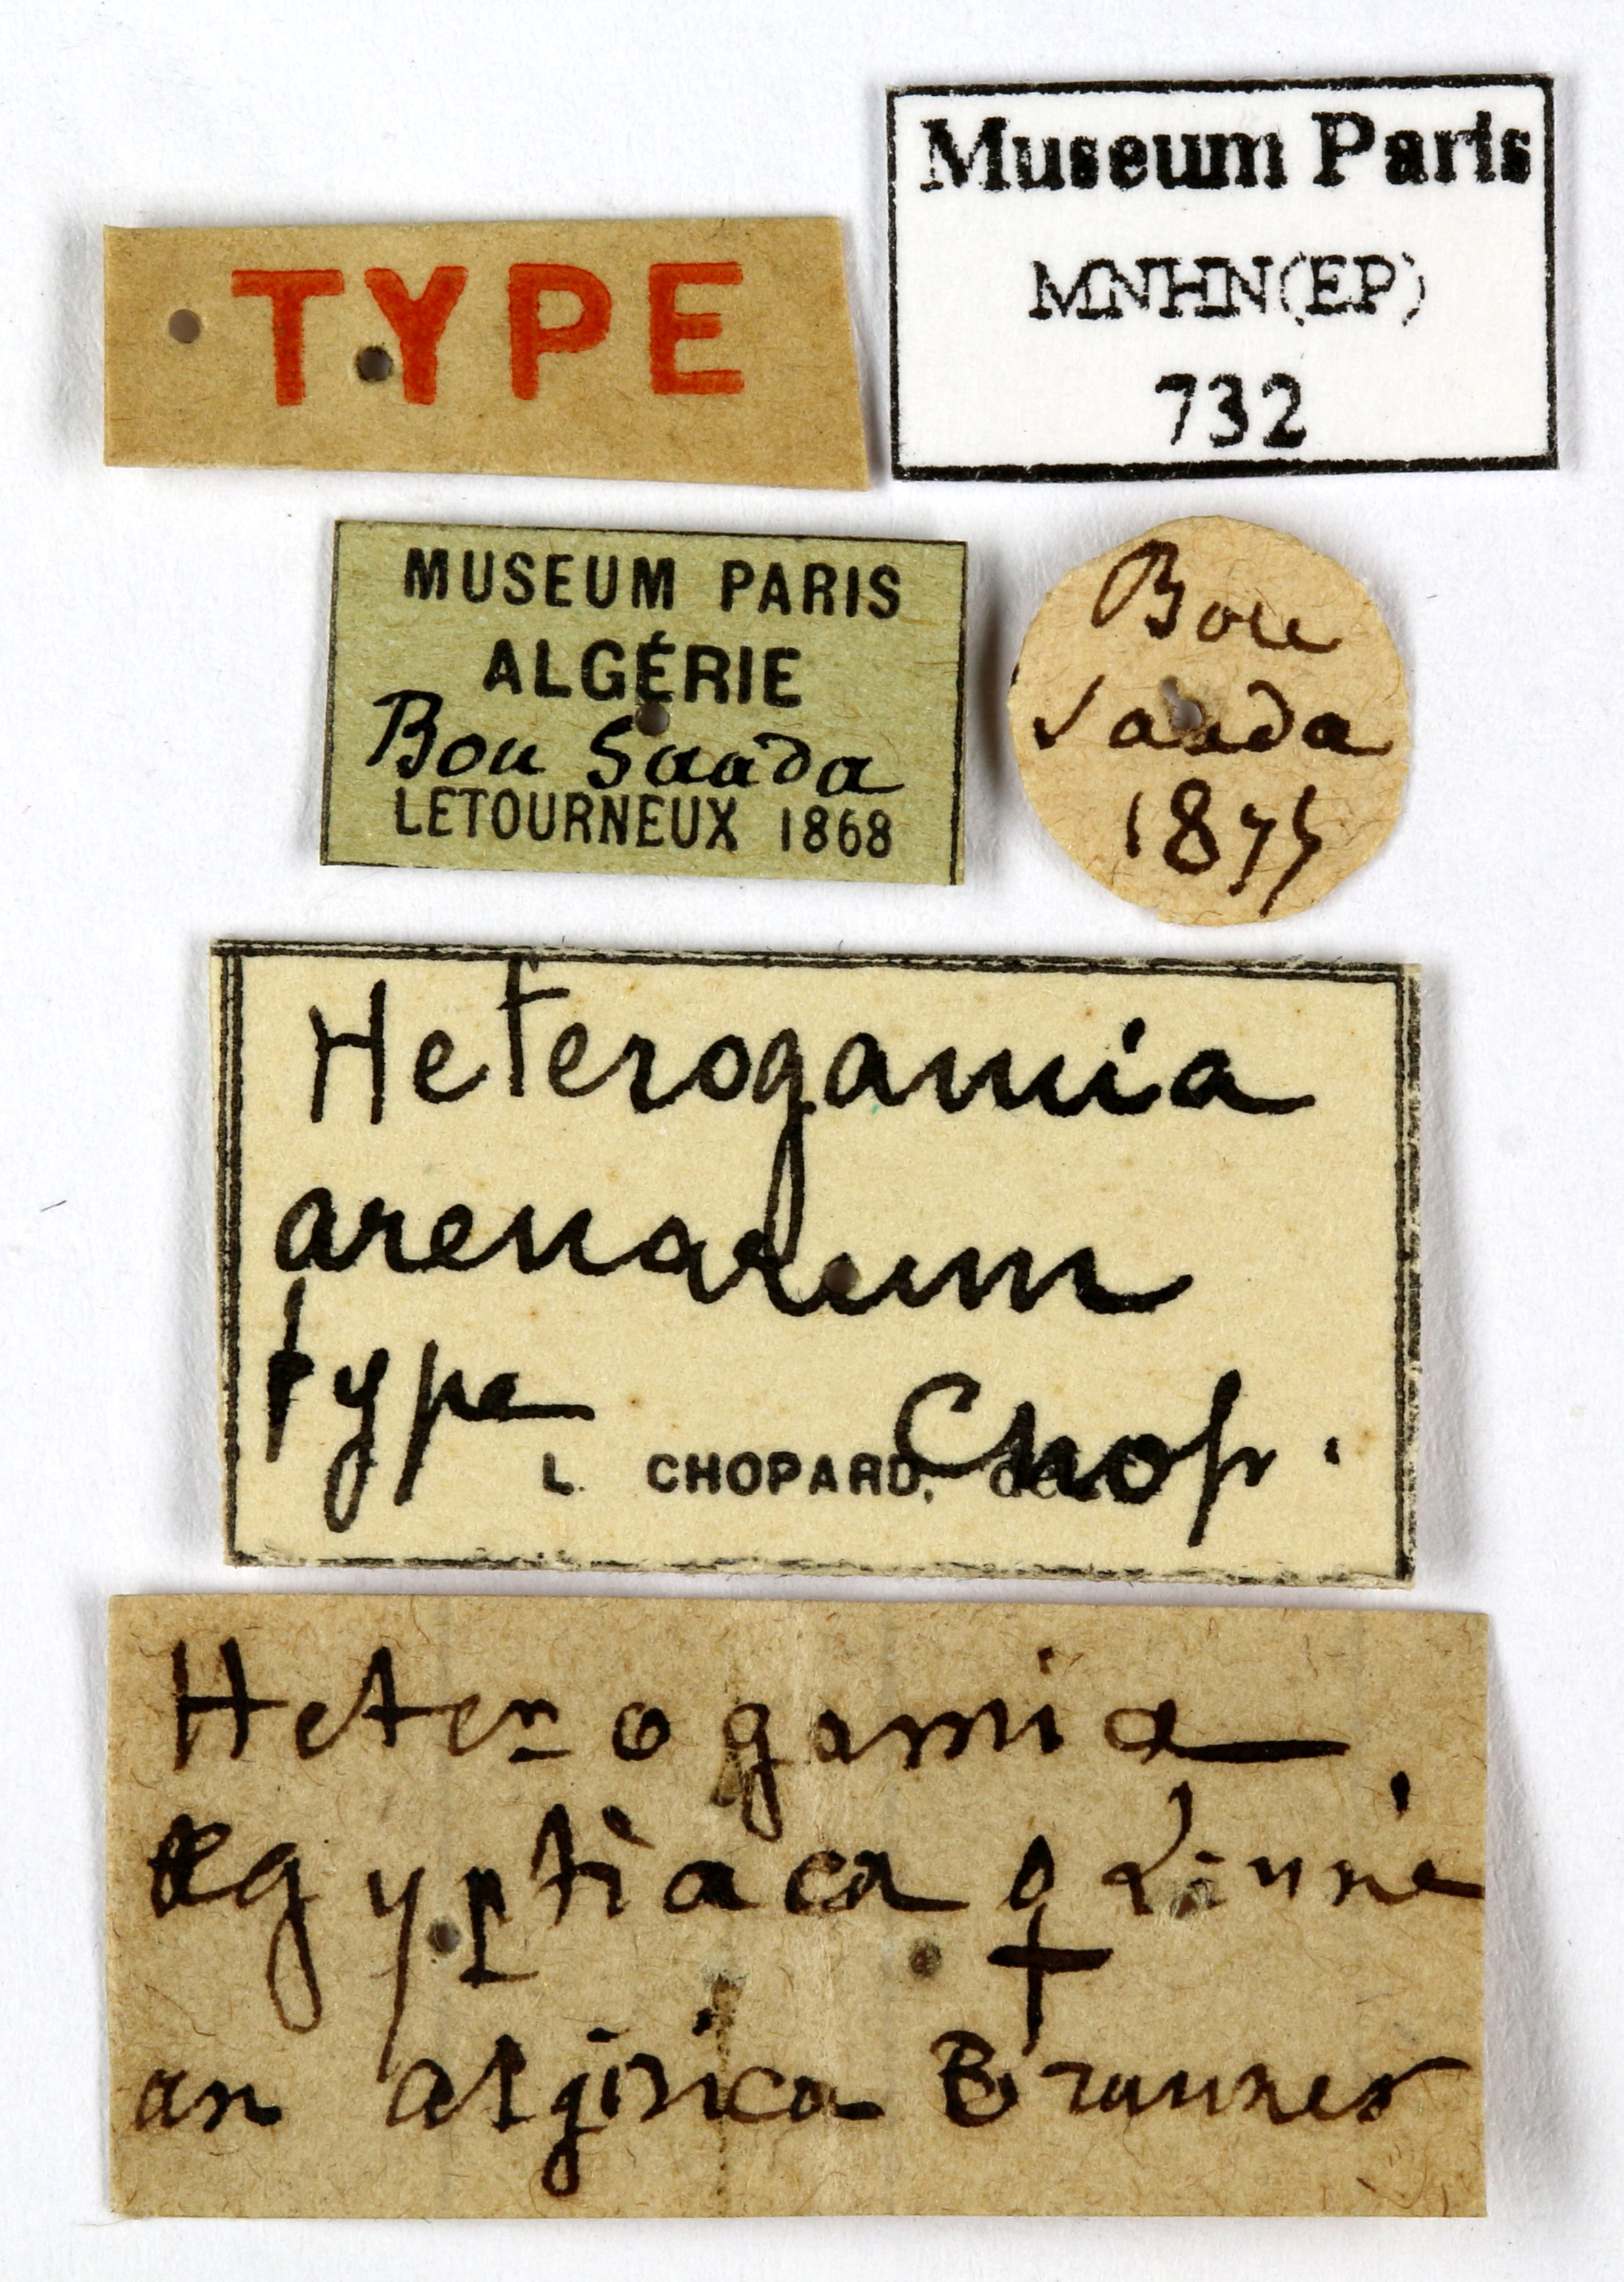 TYPE
Museum Paris
MNHN(EP)
732
MUSEUM PARIS
ALGÉRIE
Bou Saada
LETOURNEUX 1868
Bou
Saada
1875
Heterogamia
arenarum
type Chop.
L. CHOPARD, det.
Heterogamia
ægyptiaca ♀ Linné
an algirica Brunner